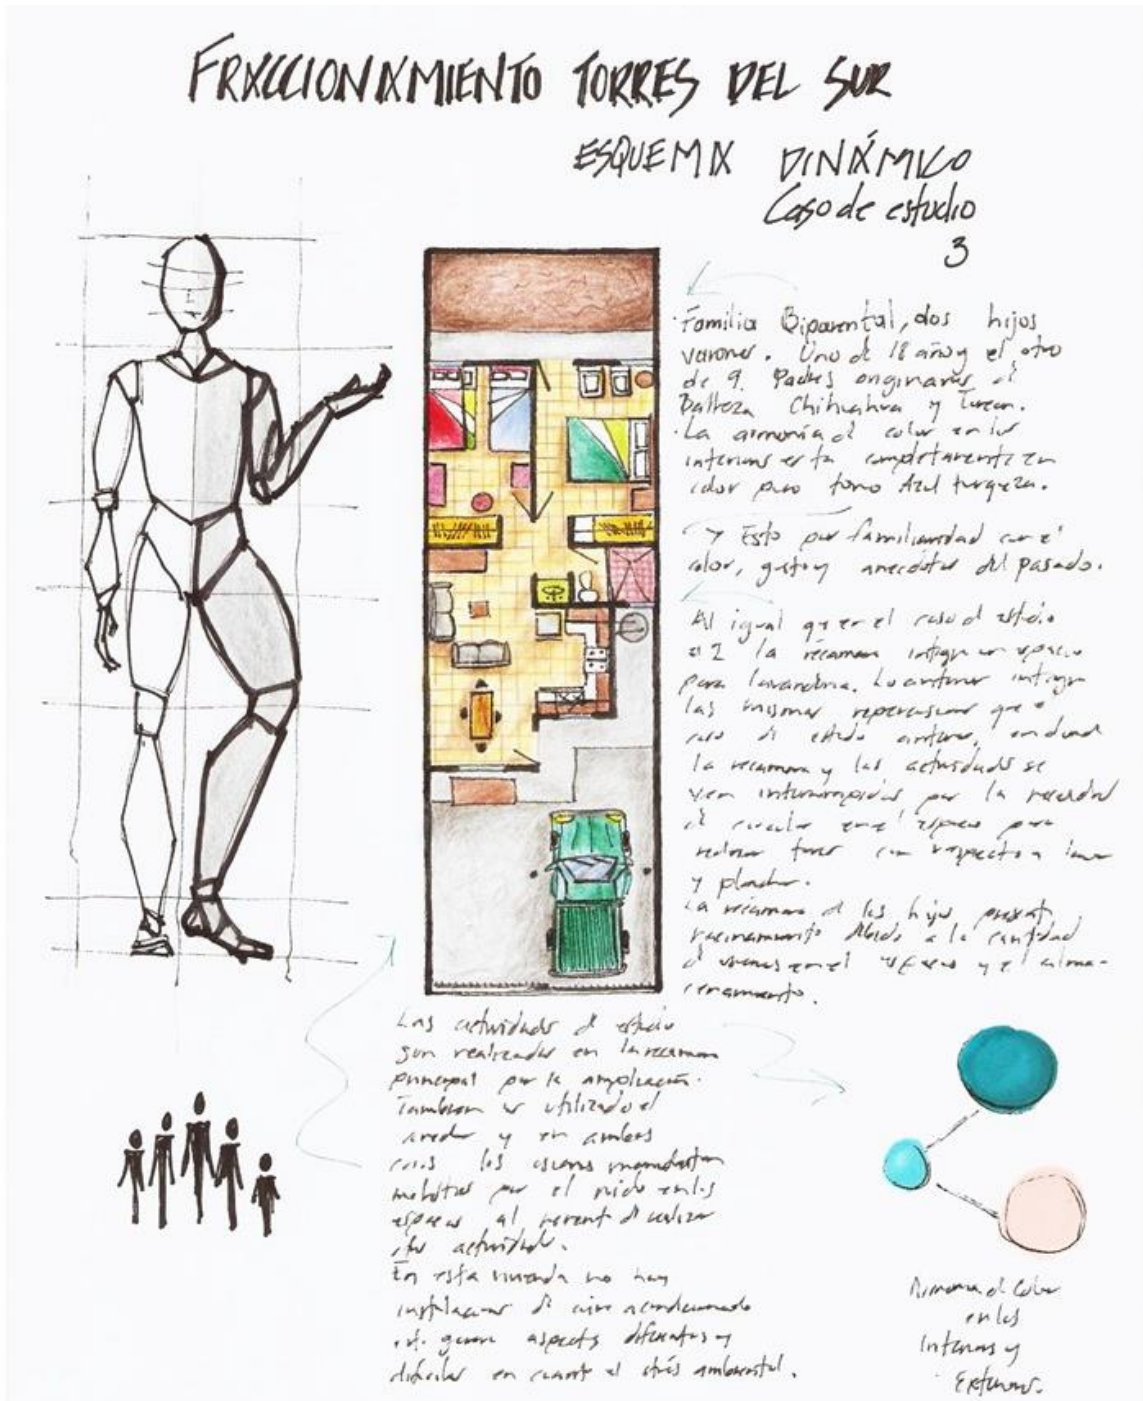 FRACCIONAMIENTO TORRES DEL SUR
ESQUEMA DINÁMICO
Caso de estudio
3
Familia Biparental, dos hijos
varones. Uno de 18 años y el otro
de 9. Padres originarios de
Balleza Chihuahua y
La armonía del color en los
interiores esta completamente en
color puro tono Azul turqueza.
→ Esto por familiaridad con el
color, gustos y anecdotas del pasado.
Al igual que en el caso de estudio
#2 la recamara integra un espacio
para lavandería. Lo anterior integra
las mismas repercusiones que el
caso de estudio anterior, en donde
la recamara y las actividades se
ven interrumpidas por la necesidad
de circular en el espacio para
realizar con respecto a lavar
y planchar.
La recamara de los hijos presenta
hacinamiento debido a la cantidad
de usuarios en el espacio y el almacenamiento.
Las actividades de estudio
son realizadas en la recamara
principal por la ampliación.
Tambien es utilizado el
comedor y en ambos
casos los usuarios manifiestan
molestias por el ruido en los
espacios al momento de realizar
sus actividades.
En esta vivienda no hay
instalaciones de aire acondicionado
aspectos diferentes y
en cuanto al estrés ambiental.
Armonia del Color
en los
Interiores y
Exteriores.